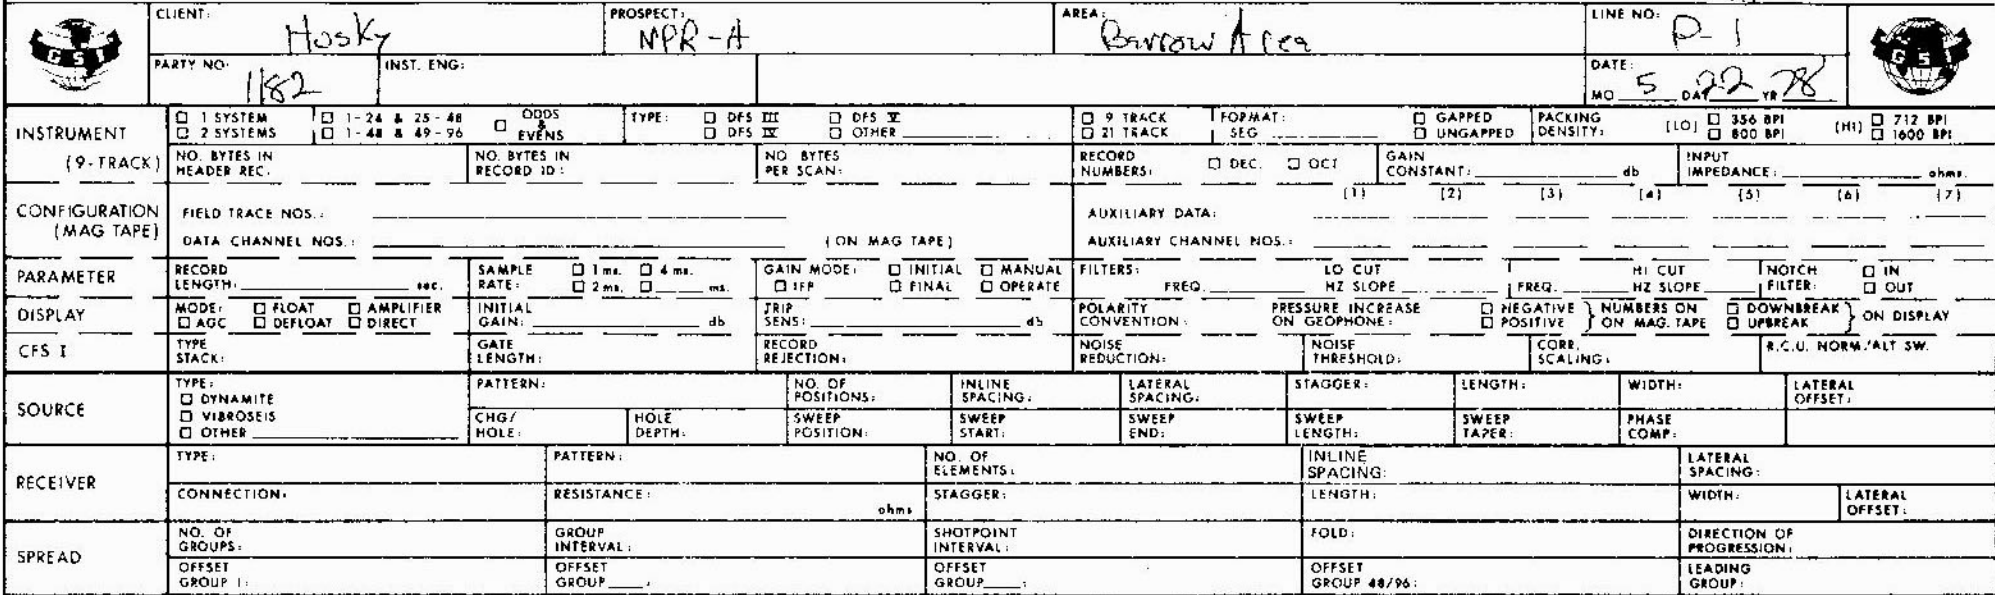 CLIENT: Husky PROSPECT: NPR-A AREA: Barrow Area LINE NO: P-1
GSI GSI
PARTY NO: 1182 INST. ENG: DATE: MO 5 DAY 22 YR 78
INSTRUMENT (9-TRACK)
□ 1 SYSTEM □ 1-24 & 25-48 □ ODDS & EVENS TYPE: □ DFS III □ DFS V □ 9 TRACK FORMAT: □ GAPPED PACKING DENSITY: (LO) □ 356 BPI (HI) □ 712 BPI
□ 2 SYSTEMS □ 1-48 & 49-96 □ DFS IV □ OTHER □ 21 TRACK SEG □ UNGAPPED □ 800 BPI □ 1600 BPI
NO. BYTES IN HEADER REC. NO. BYTES IN RECORD ID: NO BYTES PER SCAN: RECORD NUMBERS: □ DEC. □ OCT GAIN CONSTANT: db INPUT IMPEDANCE: ohms.
CONFIGURATION (MAG TAPE)
(1) (2) (3) (4) (5) (6) (7)
FIELD TRACE NOS.: AUXILIARY DATA:
DATA CHANNEL NOS.: (ON MAG TAPE) AUXILIARY CHANNEL NOS.:
PARAMETER
RECORD LENGTH: sec. SAMPLE RATE: □ 1 ms. □ 4 ms. □ 2 ms. □ ms. GAIN MODE: □ INITIAL □ MANUAL □ IFP □ FINAL □ OPERATE FILTERS: LO CUT FREQ. HZ SLOPE HI CUT FREQ. HZ SLOPE NOTCH FILTER: □ IN □ OUT
DISPLAY
MODE: □ FLOAT □ AMPLIFIER □ AGC □ DEFLOAT □ DIRECT INITIAL GAIN: db TRIP SENS: db POLARITY CONVENTION: PRESSURE INCREASE ON GEOPHONE: □ NEGATIVE □ POSITIVE } NUMBERS ON MAG. TAPE □ DOWNBREAK □ UPBREAK } ON DISPLAY
CFS I
TYPE STACK: GATE LENGTH: RECORD REJECTION: NOISE REDUCTION: NOISE THRESHOLD: CORR. SCALING: R.C.U. NORM./ALT SW.
SOURCE
TYPE: □ DYNAMITE □ VIBROSEIS □ OTHER PATTERN: NO. OF POSITIONS: INLINE SPACING: LATERAL SPACING: STAGGER: LENGTH: WIDTH: LATERAL OFFSET:
CHG/HOLE: HOLE DEPTH: SWEEP POSITION: SWEEP START: SWEEP END: SWEEP LENGTH: SWEEP TAPER: PHASE COMP:
RECEIVER
TYPE: PATTERN: NO. OF ELEMENTS: INLINE SPACING: LATERAL SPACING:
CONNECTION: RESISTANCE: ohms STAGGER: LENGTH: WIDTH: LATERAL OFFSET:
SPREAD
NO. OF GROUPS: GROUP INTERVAL: SHOTPOINT INTERVAL: FOLD: DIRECTION OF PROGRESSION:
OFFSET GROUP 1: OFFSET GROUP : OFFSET GROUP : OFFSET GROUP 48/96: LEADING GROUP: